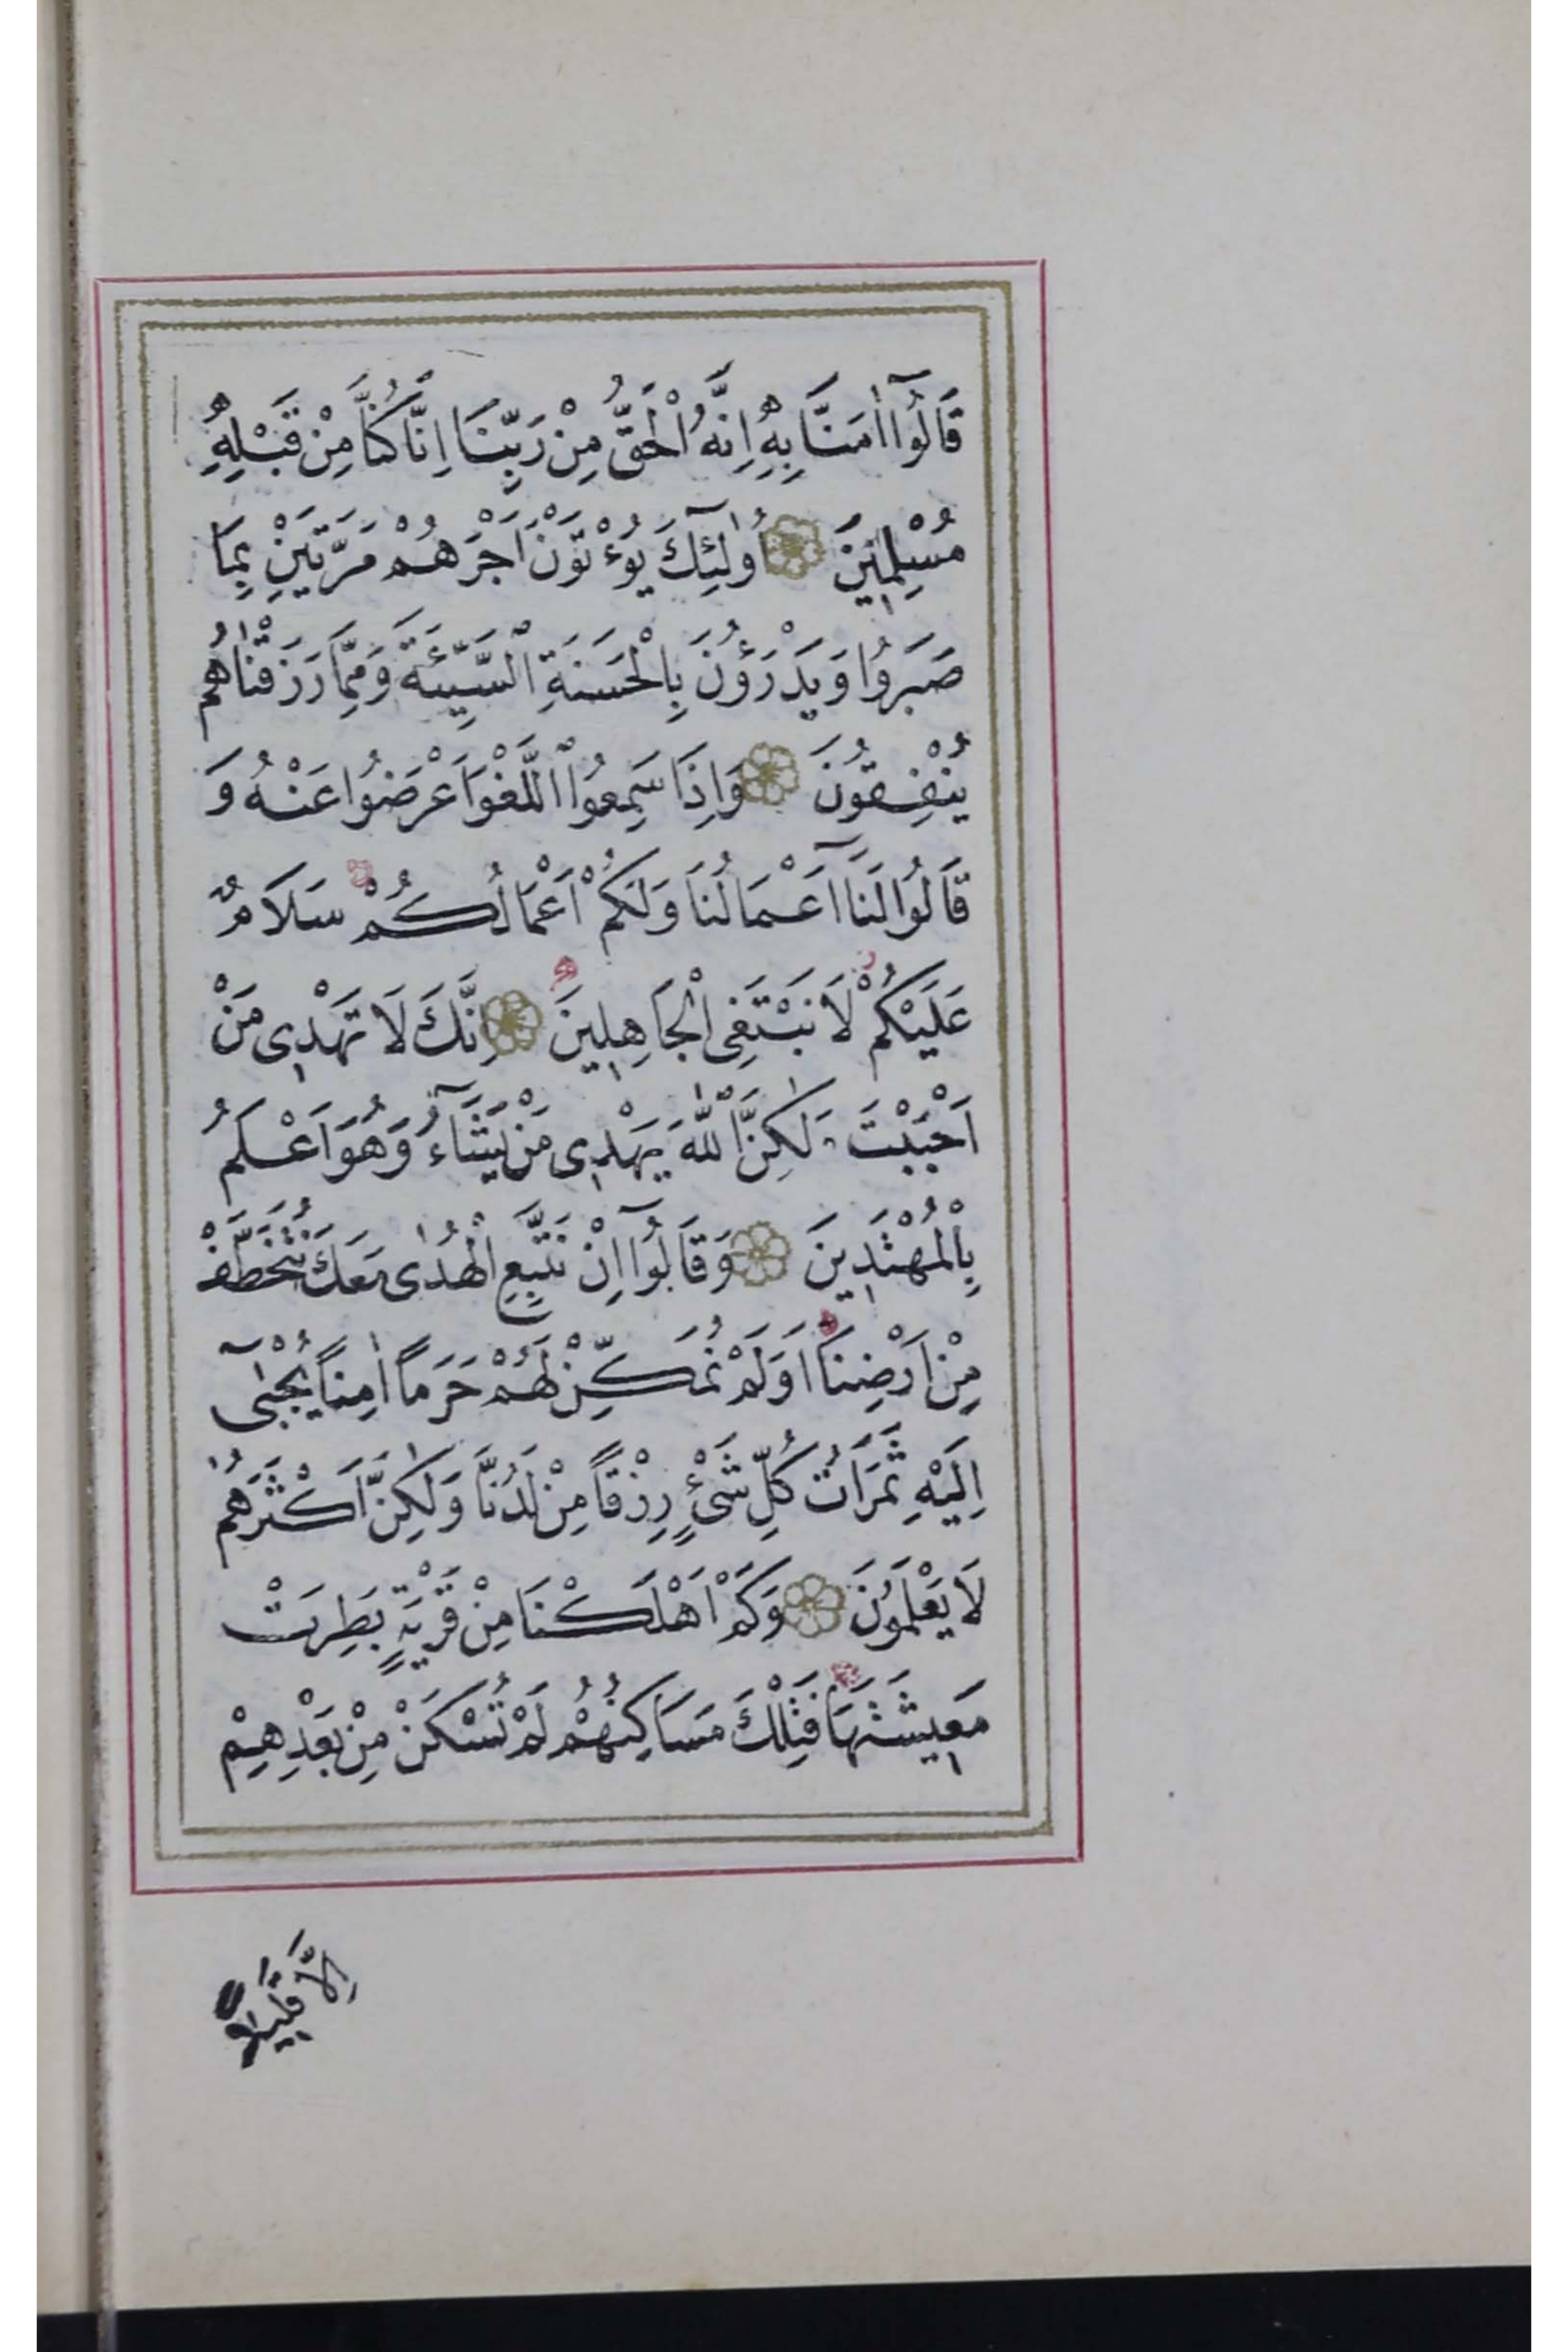 قَالُوٓا اٰمَنَّا بِهِ اِنَّهُ الْحَقُّ مِنْ رَبِّنَا اِنَّا كُنَّا مِنْ قَبْلِهِ
مُسْلِمِينَ اُولٰٓئِكَ يُؤْتَوْنَ اَجْرَهُمْ مَرَّتَيْنِ بِمَا
صَبَرُوا وَيَدْرَؤُنَ بِالْحَسَنَةِ السَّيِّئَةَ وَمِمَّا رَزَقْنَاهُمْ
يُنْفِقُونَ وَاِذَا سَمِعُوا اللَّغْوَ اَعْرَضُوا عَنْهُ وَ
قَالُوا لَنَآ اَعْمَالُنَا وَلَكُمْ اَعْمَالُكُمْ سَلَامٌ
عَلَيْكُمْ لَا نَبْتَغِى الْجَاهِلِينَ اِنَّكَ لَا تَهْدِى مَنْ
اَحْبَبْتَ وَلٰكِنَّ اللّٰهَ يَهْدِى مَنْ يَشَآءُ وَهُوَ اَعْلَمُ
بِالْمُهْتَدِينَ وَقَالُوٓا اِنْ نَتَّبِعِ الْهُدٰى مَعَكَ نُتَخَطَّفْ
مِنْ اَرْضِنَا اَوَلَمْ نُمَكِّنْ لَهُمْ حَرَمًا اٰمِنًا يُجْبٰٓى
اِلَيْهِ ثَمَرَاتُ كُلِّ شَىْءٍ رِزْقًا مِنْ لَدُنَّا وَلٰكِنَّ اَكْثَرَهُمْ
لَا يَعْلَمُونَ وَكَمْ اَهْلَكْنَا مِنْ قَرْيَةٍ بَطِرَتْ
مَعِيشَتَهَا فَتِلْكَ مَسَاكِنُهُمْ لَمْ تُسْكَنْ مِنْ بَعْدِهِمْ
اِلَّا قَلِيلًا